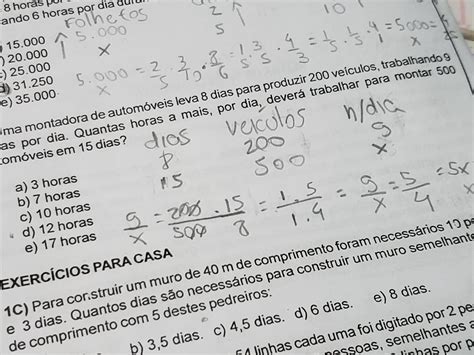 8 horas por
ando 6 horas por dia duran
folhetos
2
10
15.000
5.000
5
x
20.000
25.000
31.250
e) 35.000
x
5.000 = 2/5 . 3/10 . 8/6 = 1/5 . 3/5 . 4/3 = 1/5 . 1/5 . 4/1 = 5000 =
uma montadora de automóveis leva 8 dias para produzir 200 veículos, trabalhando 9
as por dia. Quantas horas a mais, por dia, deverá trabalhar para montar 500
tomóveis em 15 dias?
dios veículos h/dia
8 200 9
15 500 x
a) 3 horas
b) 7 horas
c) 10 horas
d) 12 horas
e) 17 horas
9/x = 200/500 . 15/8 = 1.5/1.4 = 9/x = 5/4 = 5x
EXERCÍCIOS PARA CASA
1C) Para construir um muro de 40 m de comprimento foram necessários 10 pe
e 3 dias. Quantos dias são necessários para construir um muro semelhante
de comprimento com 5 destes pedreiros:
b) 3,5 dias. c) 4,5 dias. d) 6 dias. e) 8 dias.
linhas cada uma foi digitado por 2 pe
pessoas, semelhantes